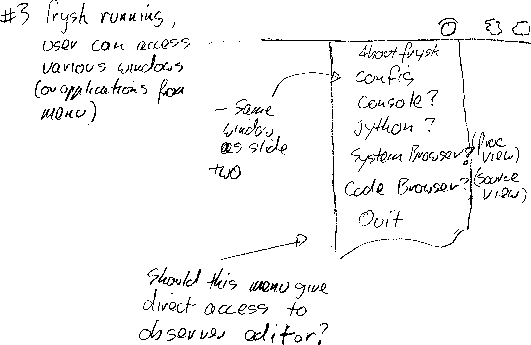 #3 frysk running,
user can access
various windows
(or applications from
menu)
About frysk
config
console?
jython?
System Browser? (Proc
view)
Code Browser? (source
view)
Quit
- Same
window
as slide
two
Should this menu give
direct access to
observer editor?